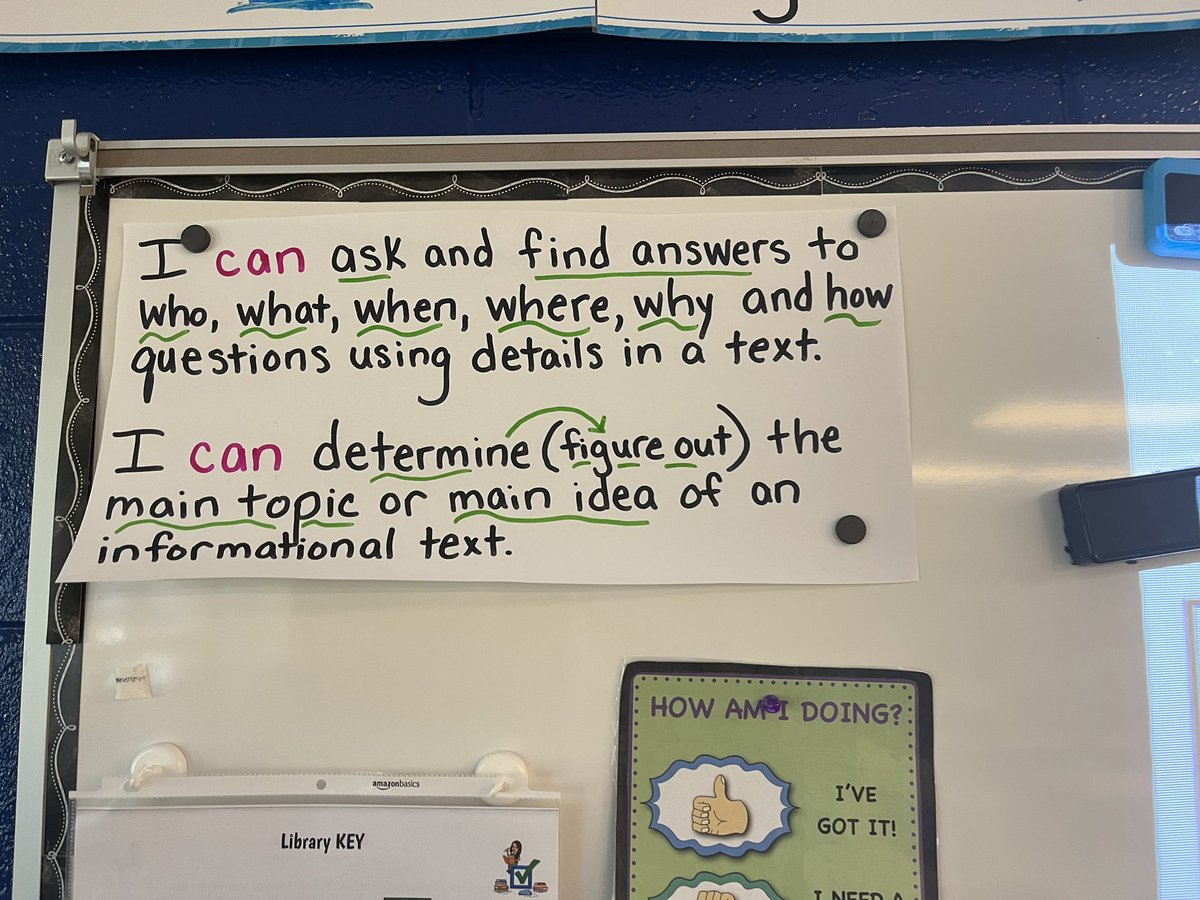 I can ask and find answers to
who, what, when, where, why and how
questions using details in a text.
I can determine (figure out) the
main topic or main idea of an
informational text.
HOW AM I DOING?
I'VE
GOT IT!
I NEED A
amazonbasics
Library KEY